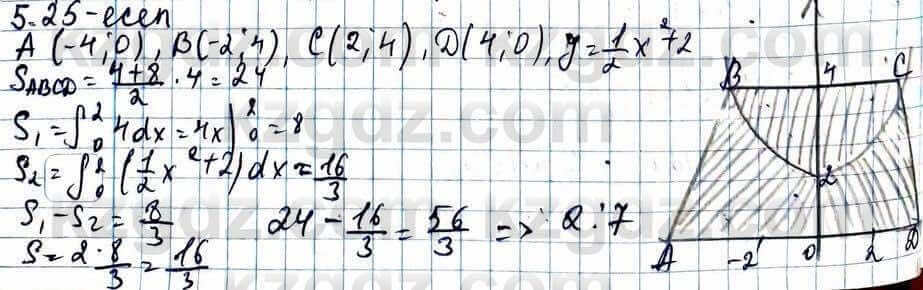 5.25-есеп
A (-4;0), B(-2;4), C(2;4), D(4;0), y=1/2 x²+2
S_ABCD = (4+8)/2 · 4 = 24
S₁ = ∫₀² 4dx = 4x |₀² = 8
S₂ = ∫₀² (1/2 x² + 2) dx = 16/3
S₁ - S₂ = 8/3
24 - 16/3 = 56/3 => 2:7
S = 2 · 8/3 = 16/3
B 4 C
2
A -2 0 2 D
kzgdz.com